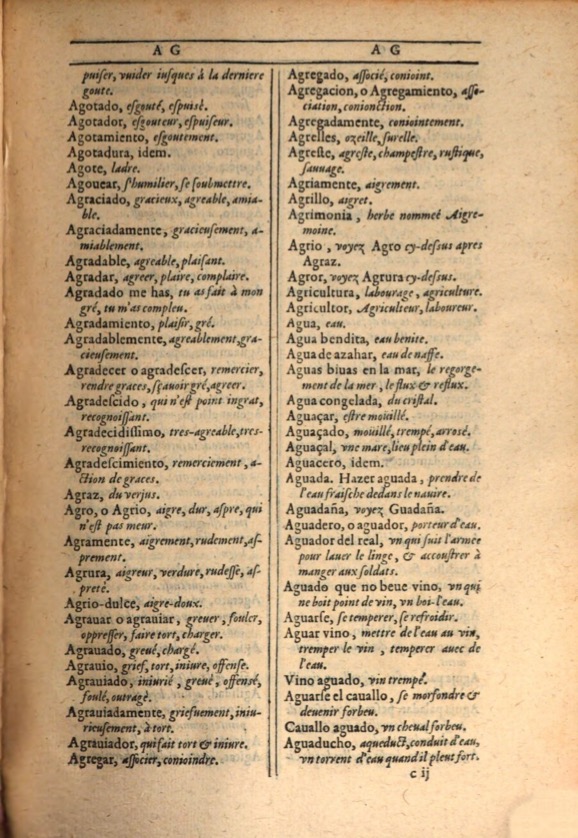 A G
puiſer, vuider iuſques à la derniere
goute.
Agotado, eſgouté, eſpuisé.
Agotador, eſgouteur, eſpuiſeur.
Agotamiento, eſgoutement.
Agotadura, idem.
Agote, ladre.
Agouear, s'humilier, ſe ſoubmettre.
Agraciado, gracieux, agreable, amia-
ble.
Agraciadamente, gracieuſement, a-
miablement.
Agradable, agreable, plaiſant.
Agradar, agreer, plaire, complaire.
Agradado me has, tu as fait à mon
gré, tu m'as compleu.
Agradamiento, plaiſir, gré.
Agradablemente, agreablement, gra-
cieuſement.
Agradecer o agradeſcer, remercier,
rendre graces, ſçauoir gré, agreer.
Agradeſcido, qui n'eſt point ingrat,
recognoiſſant.
Agradecidiſſimo, tres-agreable, tres-
recognoiſſant.
Agradeſcimiento, remerciement, a-
ction de graces.
Agraz, du verjus.
Agro, o Agrio, aigre, dur, aſpre, qui
n'eſt pas meur.
Agramente, aigrement, rudement, aſ-
prement.
Agrura, aigreur, verdure, rudeſſe, aſ-
preté.
Agrio-dulce, aigre-doux.
Agrauar o agrauiar, greuer, fouler,
oppreſſer, faire tort, charger.
Agrauado, greué, chargé.
Agrauio, grief, tort, iniure, offenſe.
Agrauiado, iniurié, greué, offensé,
foulé, outragé.
Agrauiadamente, griefuement, iniu-
rieuſement, à tort.
Agrauiador, qui fait tort & iniure.
Agregar, aſſocier, conioindre.
A G
Agregado, aſſocié, conioint.
Agregacion, o Agregamiento, aſſo-
ciation, conionction.
Agregadamente, coniointement.
Agrelles, ozeille, ſurelle.
Agreſte, agreſte, champeſtre, ruſtique,
ſauuage.
Agriamente, aigrement.
Agrillo, aigret.
Agrimonia, herbe nommeé Aigre-
moine.
Agrio, voyez Agro cy-deſſus apres
Agraz.
Agror, voyez Agrura cy-deſſus.
Agricultura, labourage, agriculture.
Agricultor, Agriculteur, laboureur.
Agua, eau.
Agua bendita, eau benite.
Agua de azahar, eau de naffe.
Aguas biuas en la mar, le regorge-
ment de la mer, le flux & reflux.
Agua congelada, du criſtal.
Aguaçar, eſtre moüillé.
Aguaçado, moüillé, trempé, arrosé.
Aguaçal, vne mare, lieu plein d'eau.
Aguacero, idem.
Aguada. Hazer aguada, prendre de
l'eau fraiſche dedans le nauire.
Aguadaña, voyez Guadaña.
Aguadero, o aguador, porteur d'eau.
Aguador del real, vn qui ſuit l'armée
pour lauer le linge, & accouſtrer à
manger aux ſoldats.
Aguado que no beue vino, vn qui
ne boit point de vin, vn boi-l'eau.
Aguarſe, ſe temperer, ſe refroidir.
Aguar vino, mettre de l'eau au vin,
tremper le vin, temperer auec de
l'eau.
Vino aguado, vin trempé.
Aguarſe el cauallo, ſe morfondre &
deuenir forbeu.
Cauallo aguado, vn cheual forbeu.
Aguaducho, aqueduct, conduit d'eau,
vn torrent d'eau quand il pleut fort.
c ij